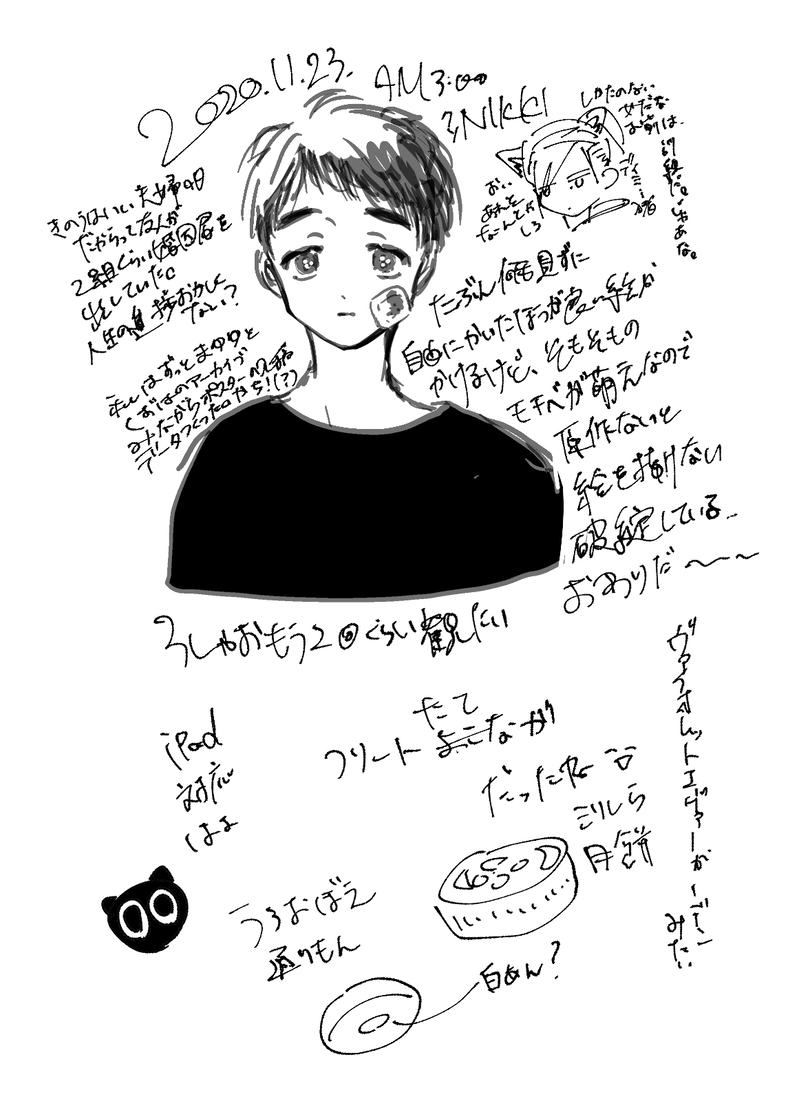 2020.11.23. AM3:00
NIKKI
きのうはいい夫婦の日
だからって友人が
2組ぐらい婚因届を
出していた。
人生の直接おかしく
ない?
私はずっとまゆゆと
くずはのアーカイブ
みながらポスターの入稿
データつくってたから!(?)
しかたのない
女だな
お前は、
お…
あれを
なーんとか
しろ
たぶん何も見ずに
自由にかいたほうが良い絵が
かけるけど、そもそもの
モチベが萌えなので
原作ないと
絵を描けない
破綻している…
おわりだ〜〜
ろしゃおもう2回ぐらい観たい
iPad
対応
はよ
フリート よこ たてなが
だったね
こりしら
月餅
うろおぼえ
通りもん
白あん?
ヴァイオレットエヴァーガーデン
みたい